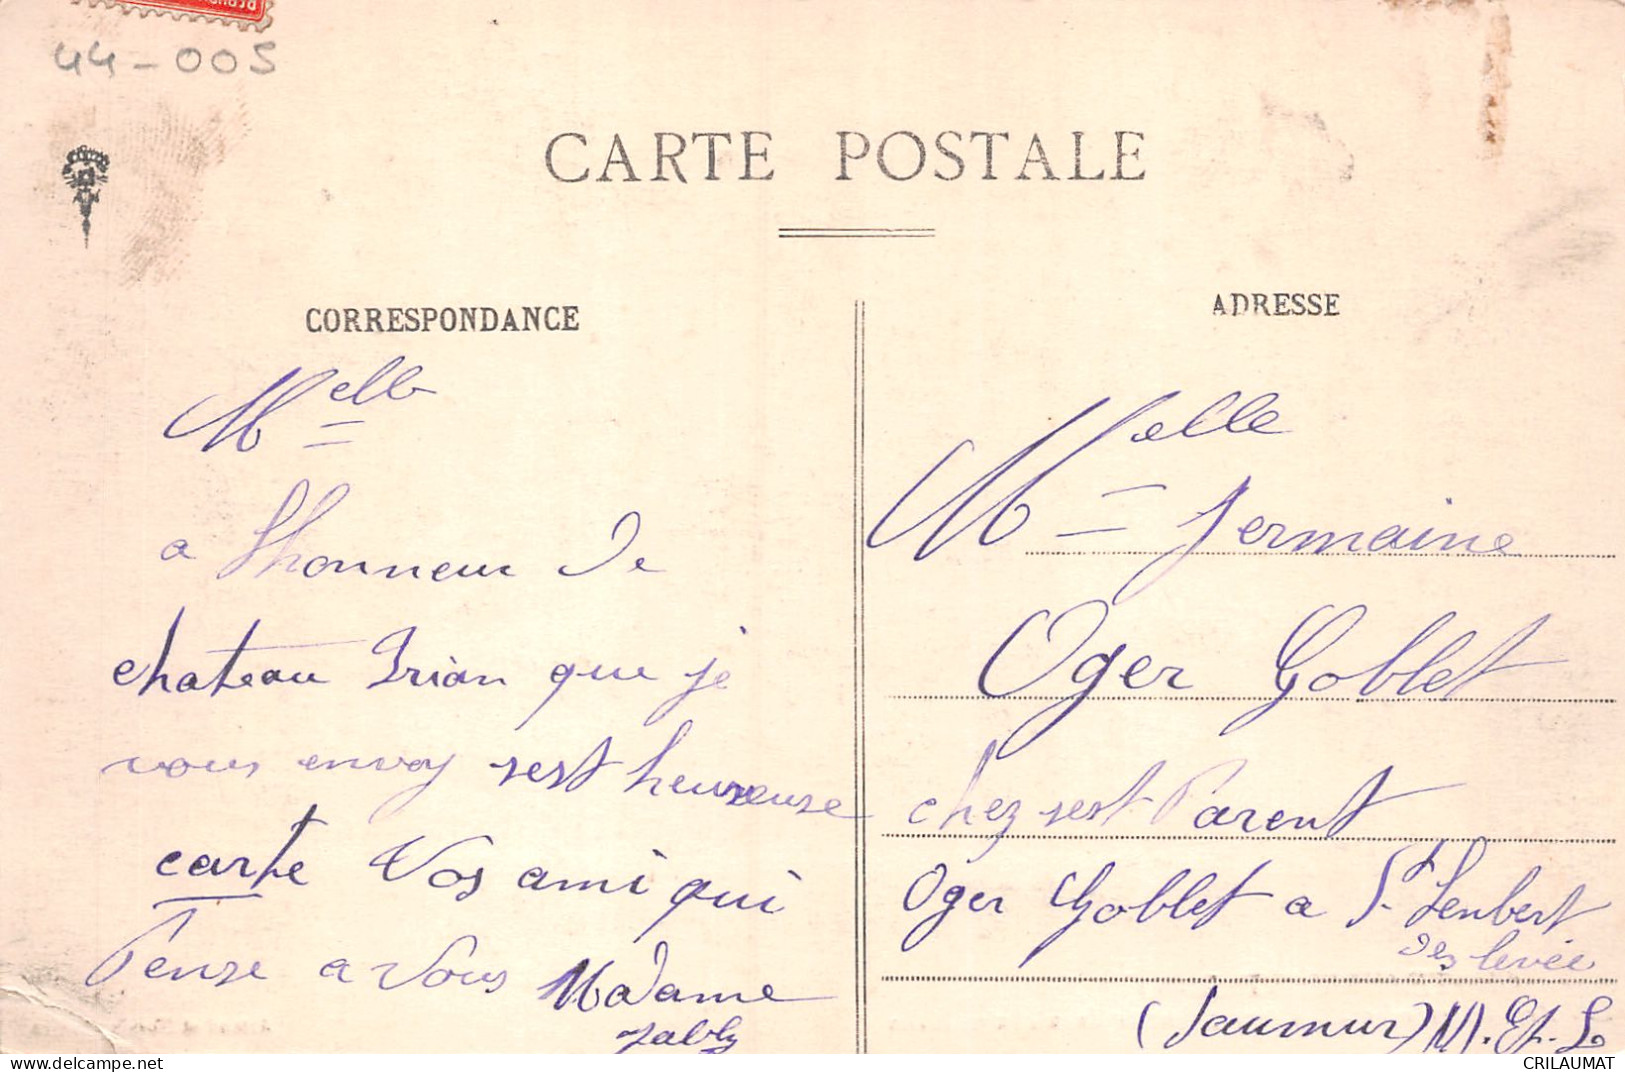 44-005
CARTE POSTALE
CORRESPONDANCE
ADRESSE
Melle
a lhonneur de
chateau Brian que je
vous envoy sest heureuse
carte Vos ami qui
Pense a Vous Madame
Melle Germaine
Oger Goblet
chez sest Parent
Oger Goblet a St Lenbert
des levée
(Saumur) M. Et. L
www.delcampe.net
CRILAUMAT